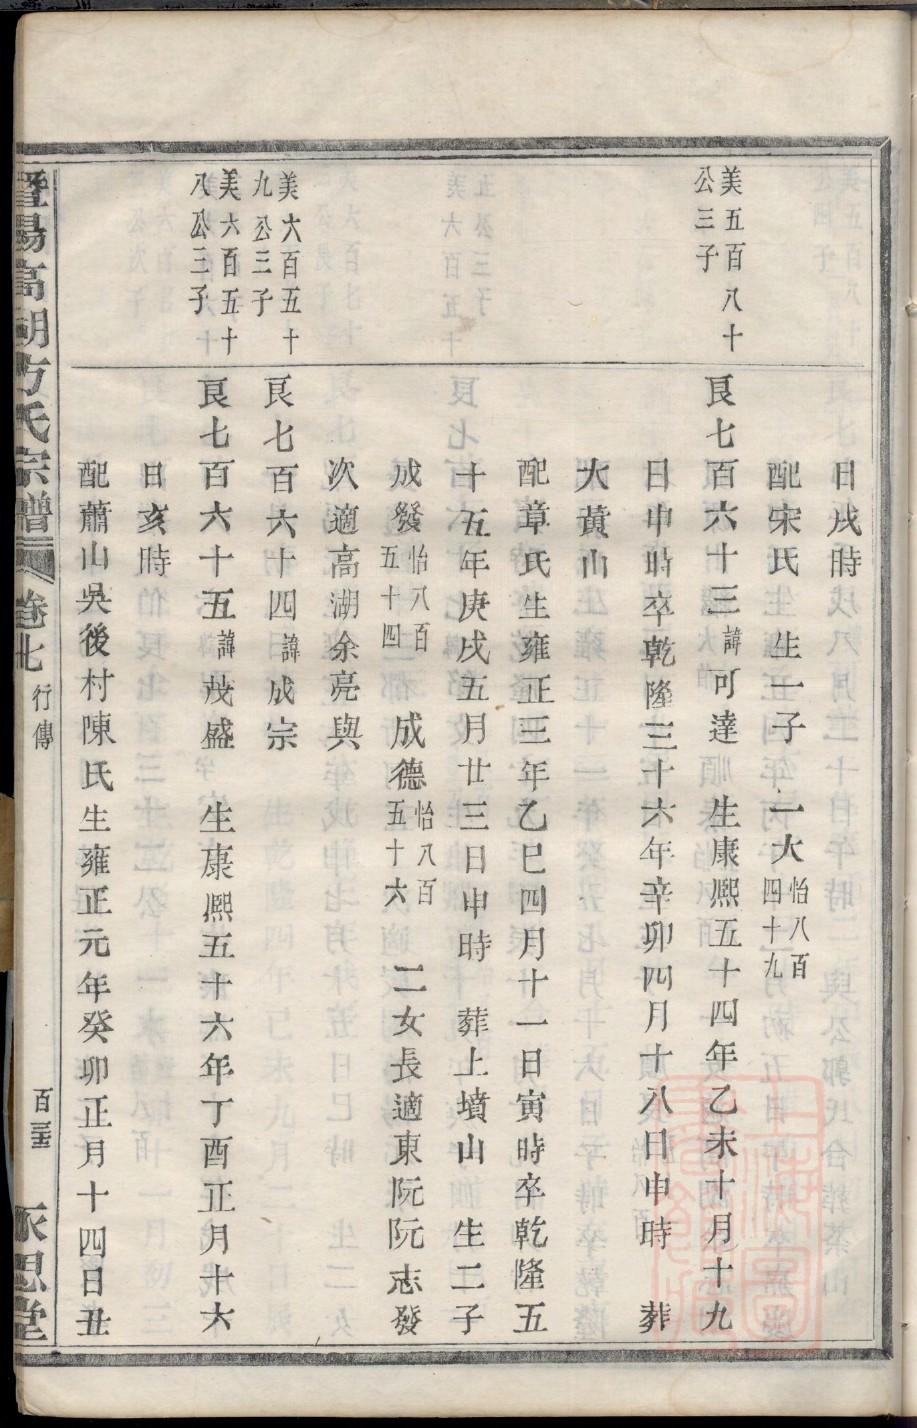 日戌時
配宋氏 生一子 一大怡八百四十九
美五百八十公三子
艮七百六十三諱可達 生康熈五十四年乙未十月十九
日申時卒乾隆三十六年辛卯四月十八日申時 葬
大黃山
配章氏生雍正三年乙巳四月十一日寅時卒乾隆五
十五年庚戌五月廿三日申時 葬上墳山 生二子
成發怡八百五十四 成德怡八百五十六 二女長適東阮阮志發
次適高湖余亮與
美六百五十九公三子
艮七百六十四諱成宗
美六百五十八公三子
艮七百六十五諱茂盛 生康熈五十六年丁酉正月十六
日亥時
配蕭山吳後村陳氏生雍正元年癸卯正月十四日丑
暨陽高湖方氏宗譜 卷七 行傳 永思堂